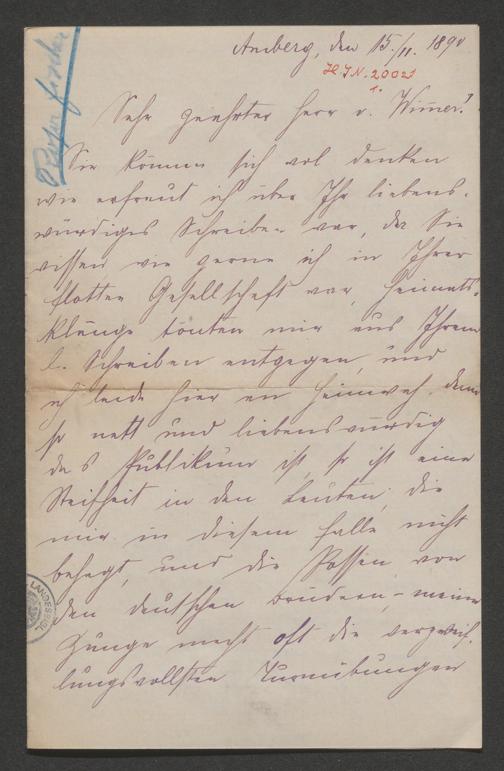 Amberg, den 15./11. 1890
H.I.N. 20021
1.
Sehr geehrter Herr v. Wimer!
Sie können sich wol denken
wie erfreut ich über Ihr liebens-
würdiges Schreiben war, da Sie
wissen wie gerne ich in Ihrer
flotten Gesellschaft war, Heimats-
klänge tönten mir aus Ihrem
l. Schreiben entgegen, und
ich leide hier an Heimweh, denn
so nett und liebenswürdig
das Publikum ist, so ist eine
Steifheit in den Leuten, die
mir in diesem Falle nicht
behagt, und die Possen von
den deutschen Brüdern, – meine
Zunge macht oft die verzweif-
lungsvollsten Turnübungen
LANDESBIBL